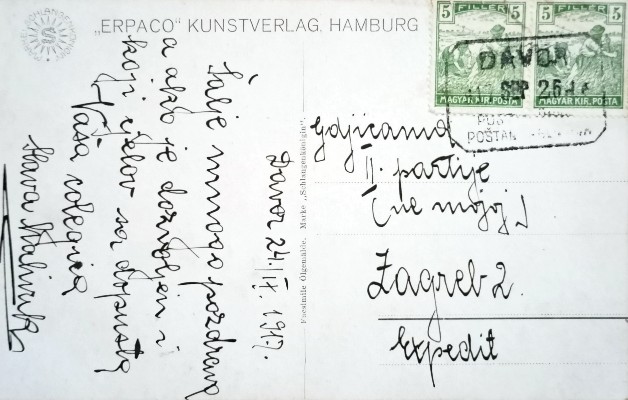 „ERPACO" KUNSTVERLAG, HAMBURG
5 FILLER 5
MAGYAR KIR. POSTA
5 FILLER 5
MAGYAR KIR. POSTA
DAVOR
SEP 26
POŠTAN
Facsimile Ölgemälde. Marke „Schlangenkönigin".
Davor 24./IX. 1917.
Šalje mnogo pozdrava
a ako je dozvoljen i
koji cjelov sa dopusta
Vaša colegica
Slava
Gdjicama
II. partije
(ne mojoj)
Zagreb 2.
Expedit